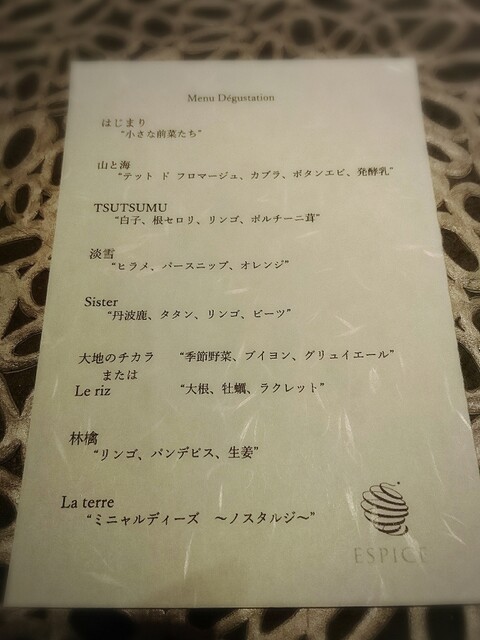 Menu Dégustation
はじまり
“小さな前菜たち”
山と海
“テット ド フロマージュ、カブラ、ボタンエビ、発酵乳”
TSUTSUMU
“白子、根セロリ、リンゴ、ポルチーニ茸”
淡雪
“ヒラメ、パースニップ、オレンジ”
Sister
“丹波鹿、タタン、リンゴ、ビーツ”
大地のチカラ “季節野菜、ブイヨン、グリュイエール”
または
Le riz “大根、牡蠣、ラクレット”
林檎
“リンゴ、パンデピス、生姜”
La terre
“ミニャルディーズ ～ノスタルジ～”
ESPICE